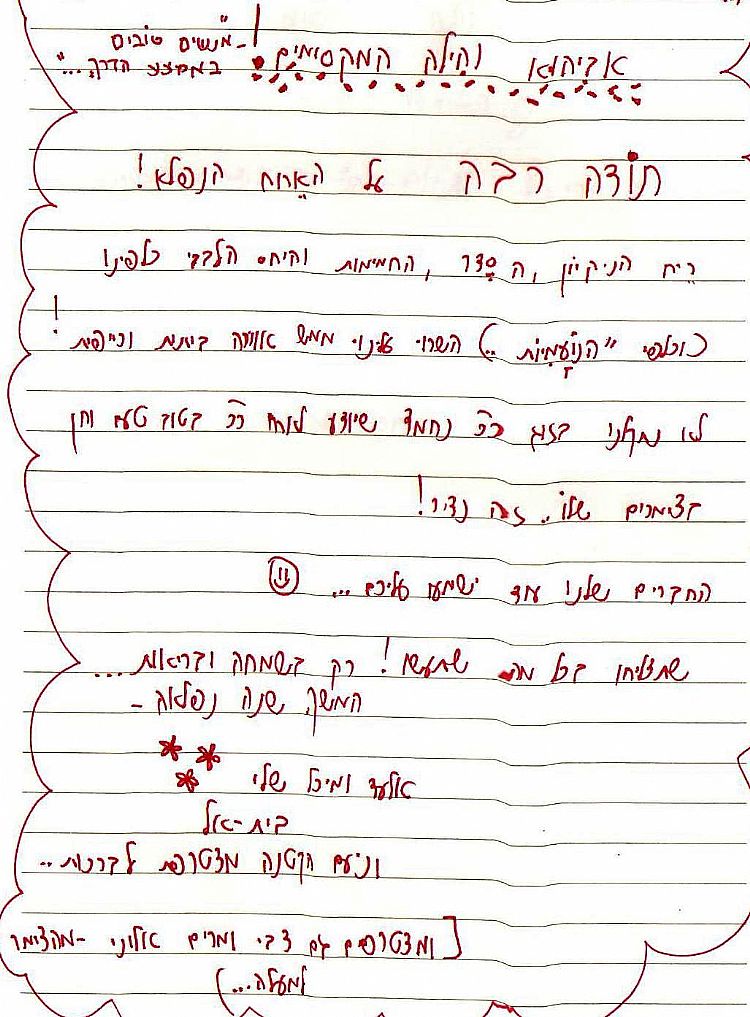 אביהוא והילה המקסימים!
"-אנשים טובים
באמצע הדרך..."
תודה רבה על האירוח הנפלא!
ריח הניקיון, הסדר, החמימות והיחס הלבבי כלפינו
(וכלפי "הנועמיות..") השרו עלינו ממש אווירה ביתית וכייפית!
לא נתקלנו בזוג כ"כ נחמד שיודע לארח כ"כ בטוב טעם וחן
בצימרים שלו.. זה נדיר!
החברים שלנו עוד ישמעו עליכם...
שתצליחו בכל מה שתעשו! רק בשמחה ובריאות...
המשך שנה נפלאה -
אלעד ומיכל שלי
בית-אל
ונעם הקטנה מצטרפת לברכות..
[ומצטרפים גם צבי ומרים אלוני -מהצימר
למעלה...)